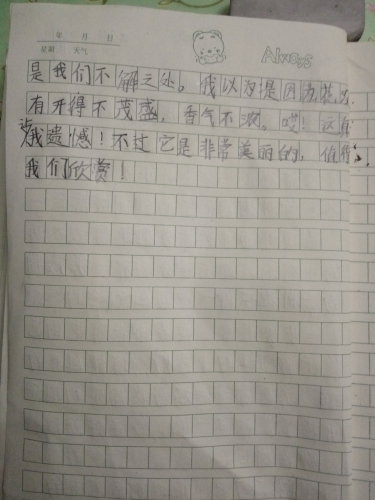 年 月 日
星期 天气
Always
是我们不解之处。我以为是因为花没
有开得不茂盛，香气不浓。哎！这真
让我遗憾！不过它是非常美丽的，值得
我们欣赏！